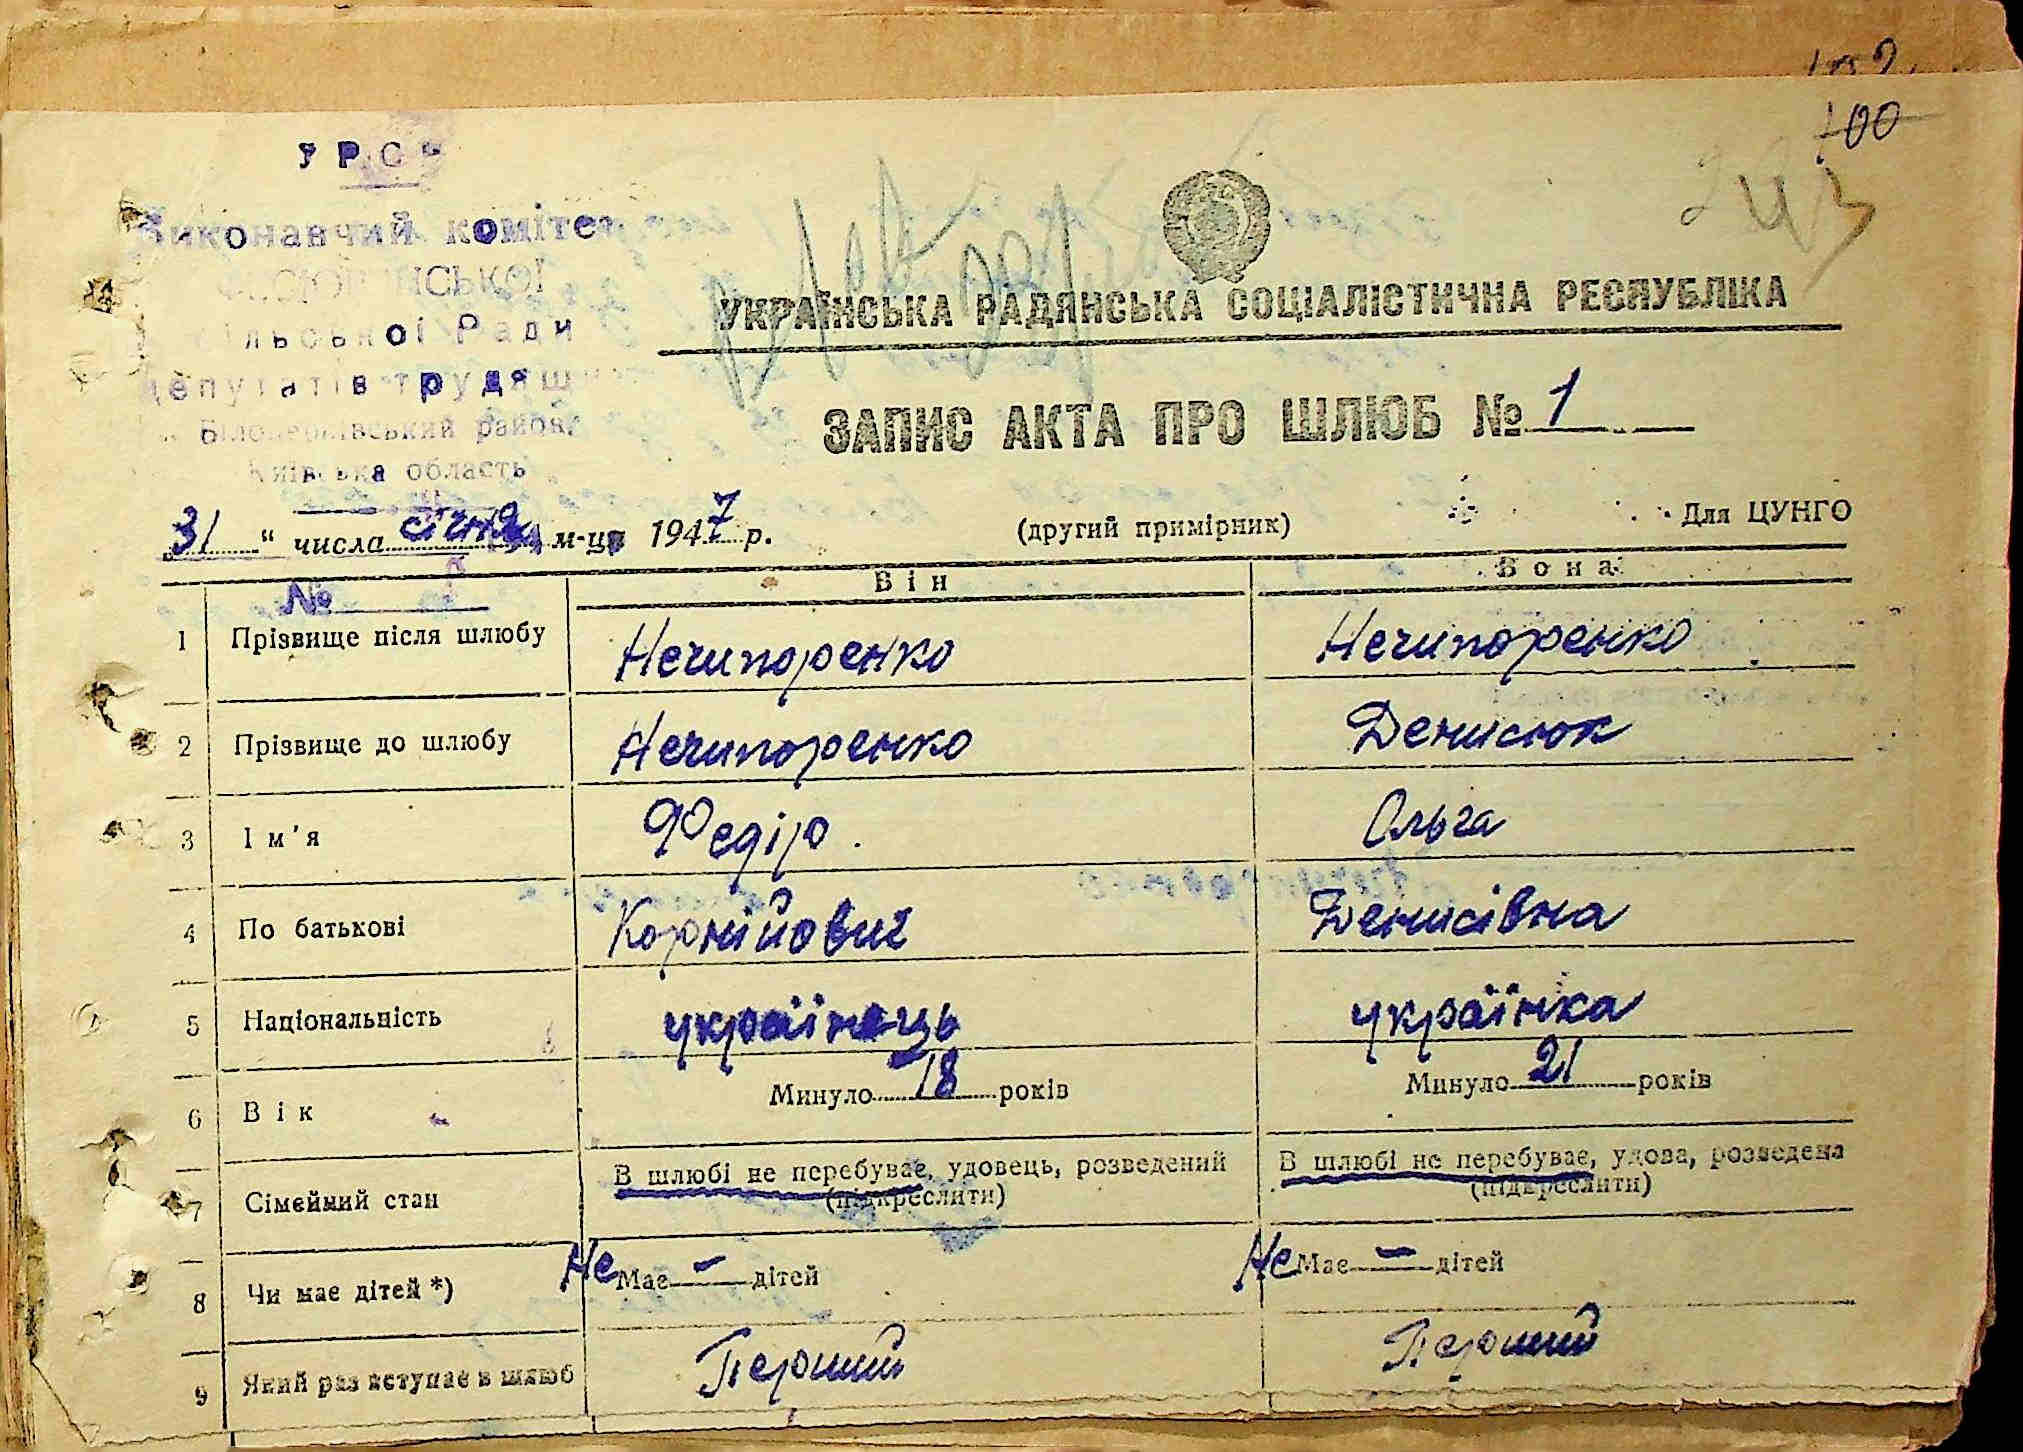 100
УРСР
Виконавчий комітет
сільської Ради
депутатів трудящ
Білоцерківський район,
Київська область
УКРАЇНСЬКА РАДЯНСЬКА СОЦІАЛІСТИЧНА РЕСПУБЛІКА
ЗАПИС АКТА ПРО ШЛЮБ № 1
31 " числа січня м-ця 1947 р.
(другий примірник)
Для ЦУНГО
№
Він
Вона
1 Прізвище після шлюбу Нечипоренко Нечипоренко
2 Прізвище до шлюбу Нечипоренко Денисюк
3 Ім'я Федір. Ольга
4 По батькові Корнійович Денисівна
5 Національність українець українка
6 Вік Минуло 18 років Минуло 21 років
7 Сімейний стан В шлюбі не перебуває, удовець, розведений (підкреслити) В шлюбі не перебуває, удова, розведена (підкреслити)
8 Чи має дітей *) Не Має – дітей Не Має – дітей
9 Який раз вступає в шлюб Перший Перший